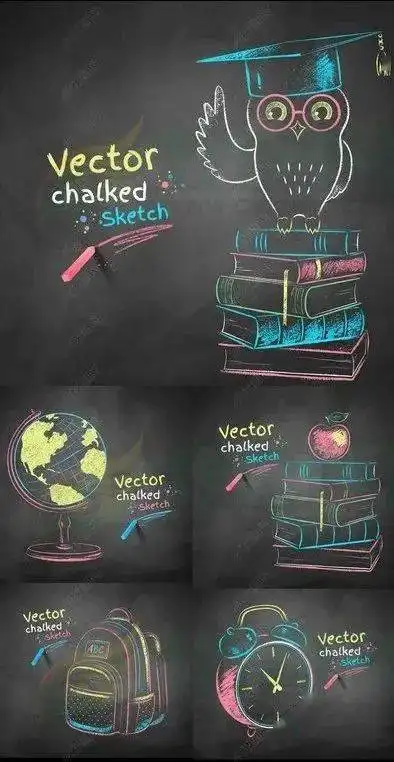 Vector
chalked
Sketch
Vector
chalked
Sketch
Vector
chalked
Sketch
Vector
chalked
Sketch
ABC
Vector
chalked
Sketch